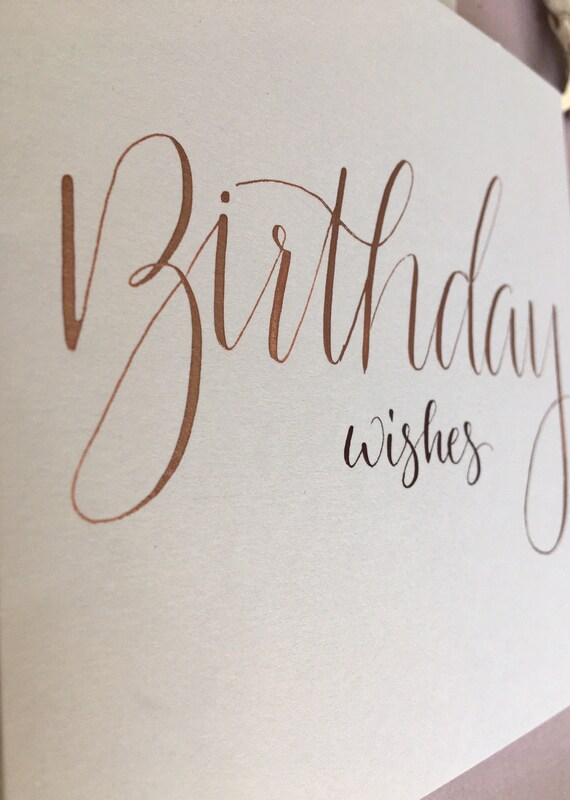 Birthday
wishes